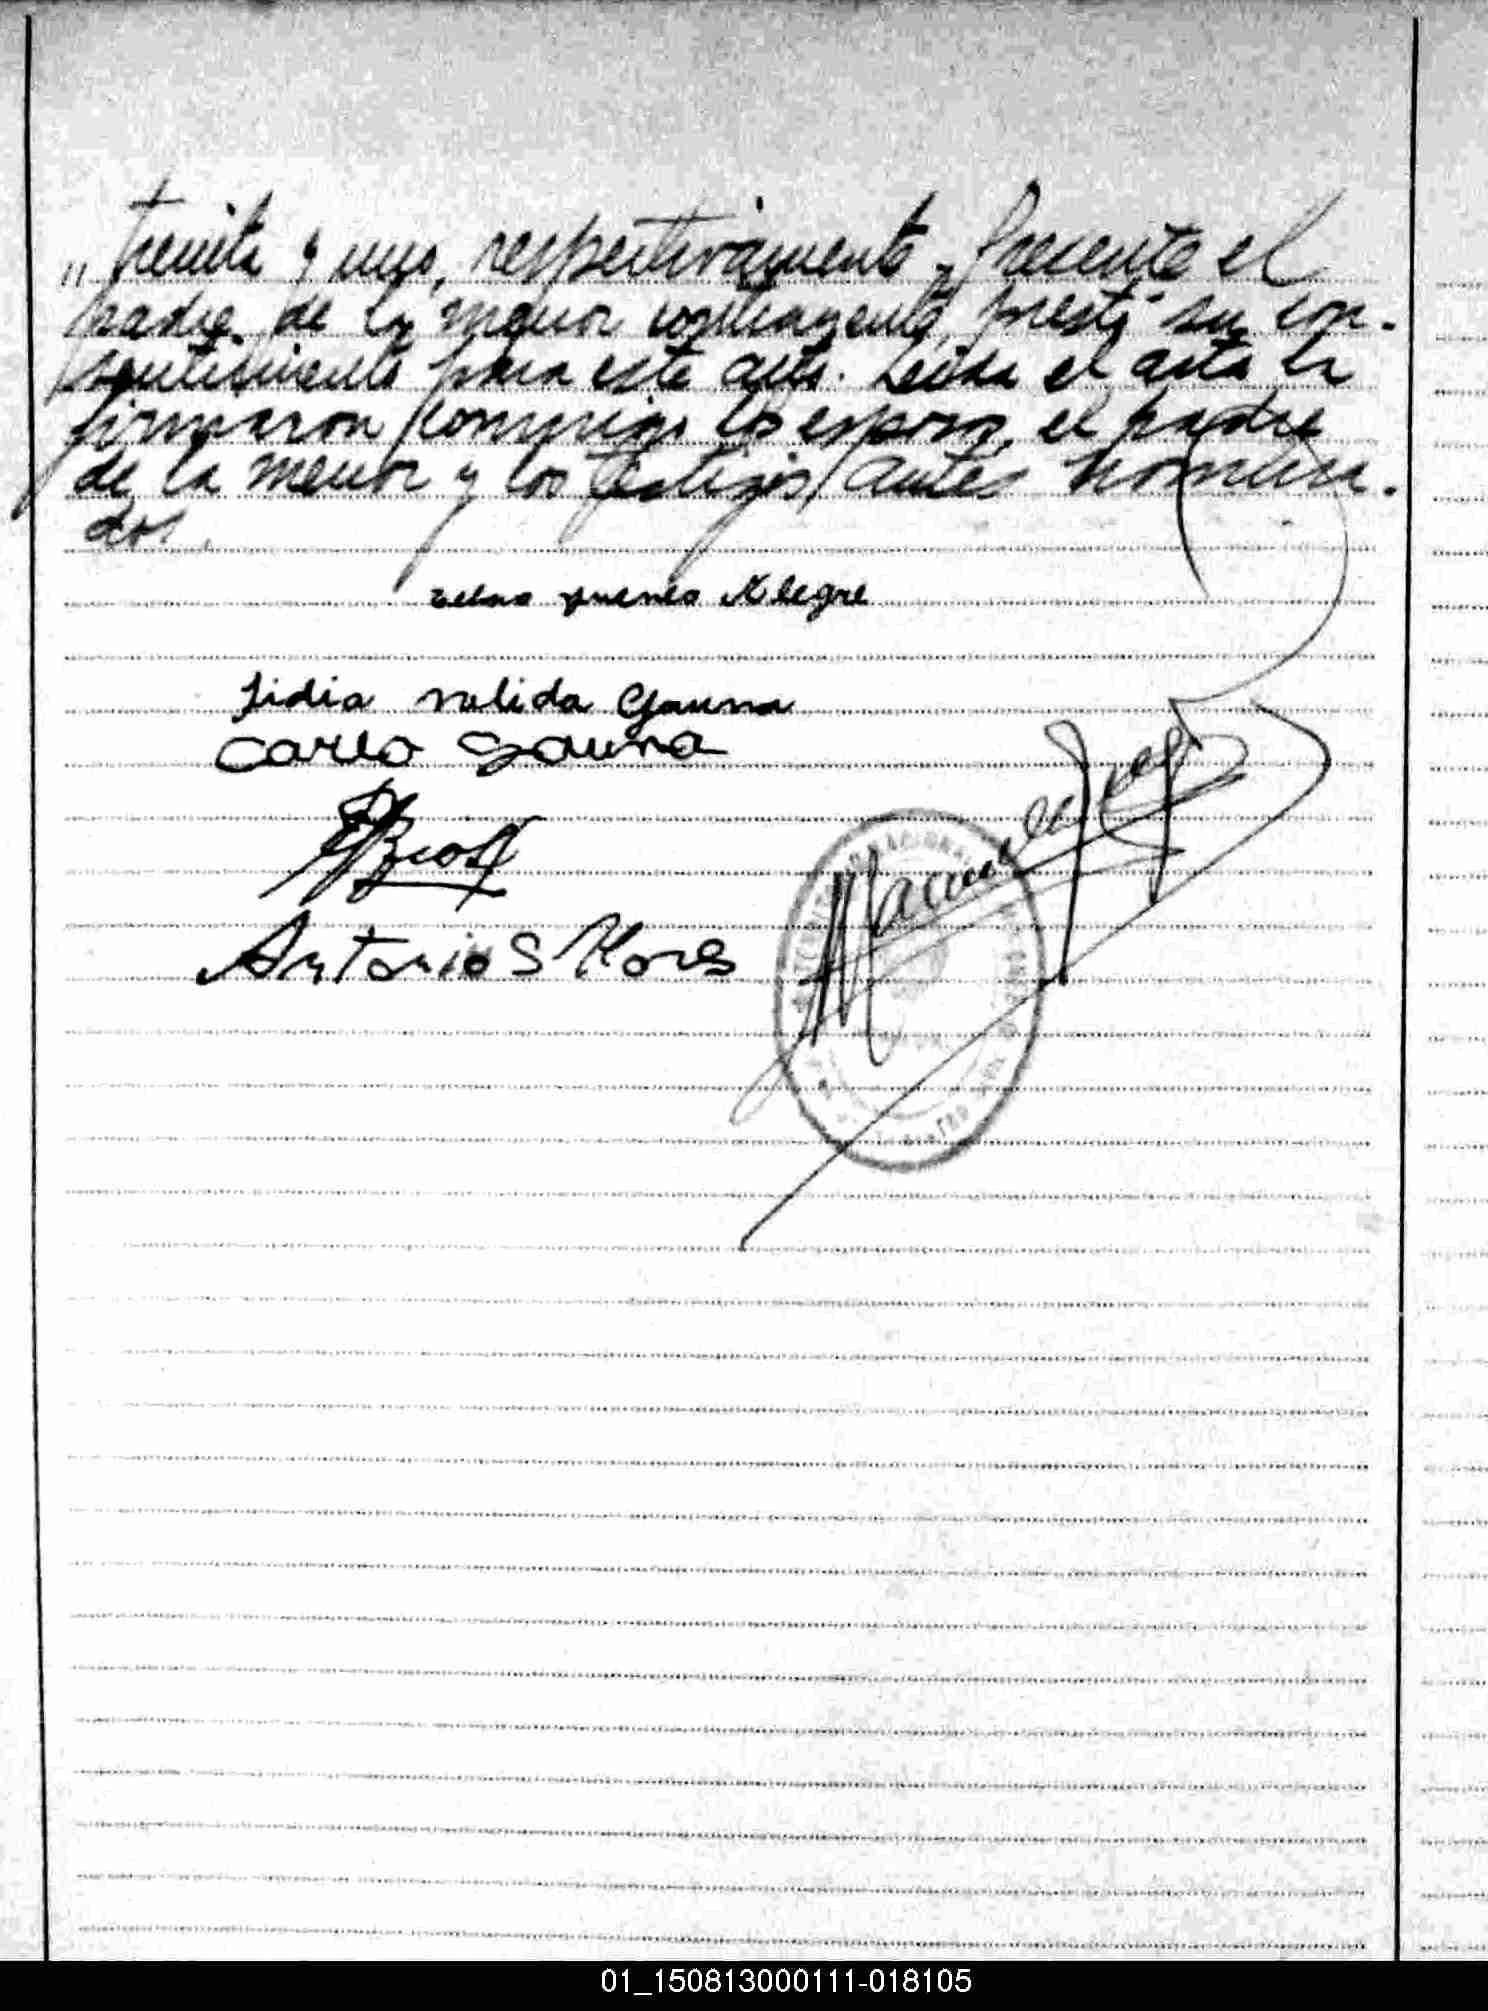 „ treinta y uno, respectivamente, presente el
padre de la menor contrayente, prestó su con-
sentimiento para este acto. Leída el acta la
firmaron conmigo los esposos, el padre
de la menor y los testigos antes nombra-
dos.
Alegre
Lidia Nelida Gauna
Carlo Gauna
Antonio S Flores
01_150813000111-018105